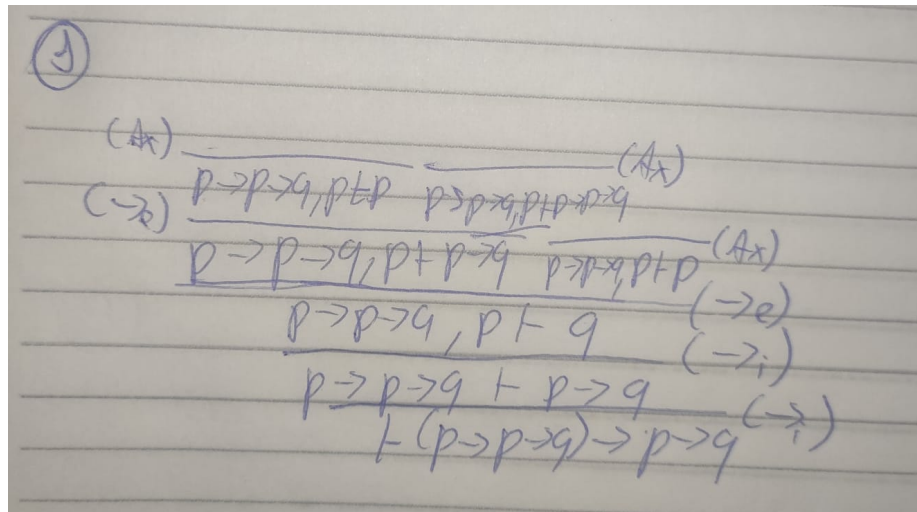 ①
(Ax) (Ax)
p→p→q, p⊢p p→p→q, p⊢p→p→q
(→e)
p→p→q, p⊢p→q p→p→q, p⊢p (Ax)
p→p→q, p ⊢ q (→e)
p→p→q ⊢ p→q (→i)
⊢(p→p→q)→p→q (→i)